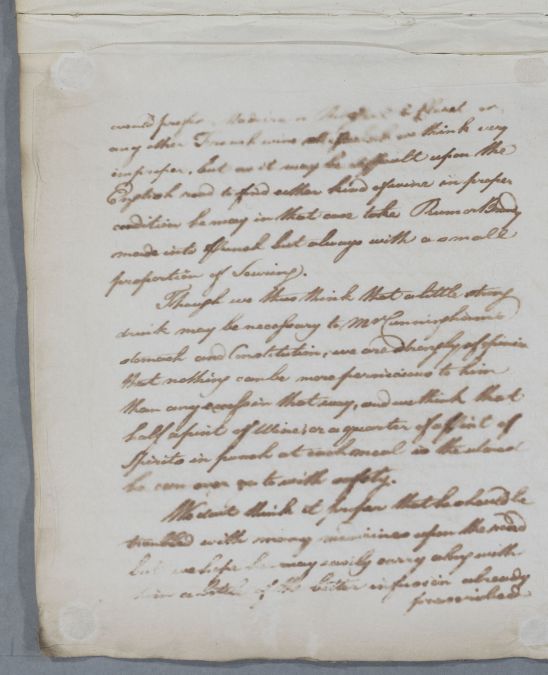 would prefer Madeira or to Claret or
any other French wine we think very
improper, but as it may be difficult upon the
English road to find either kind of wine in proper
condition he may in that case take Rum or Brandy
made into Punch but always with a small
proportion of Souring.
Though we thus think that a little strong
drink may be necessary to Mr Cunningham's
stomach and Constitution, we are strongly of opinion
that nothing can be more pernicious to him
than any excess in that way, and we think that
half a pint of Wine, or a quarter of a pint of
Spirits in punch at each meal is the utmost
he can ever go to with safety.
We dont think it proper that he should be
troubled with many medicines upon the road
but we hope he may easily carry along with
him a bottle of the bitter infusion already
prescribed